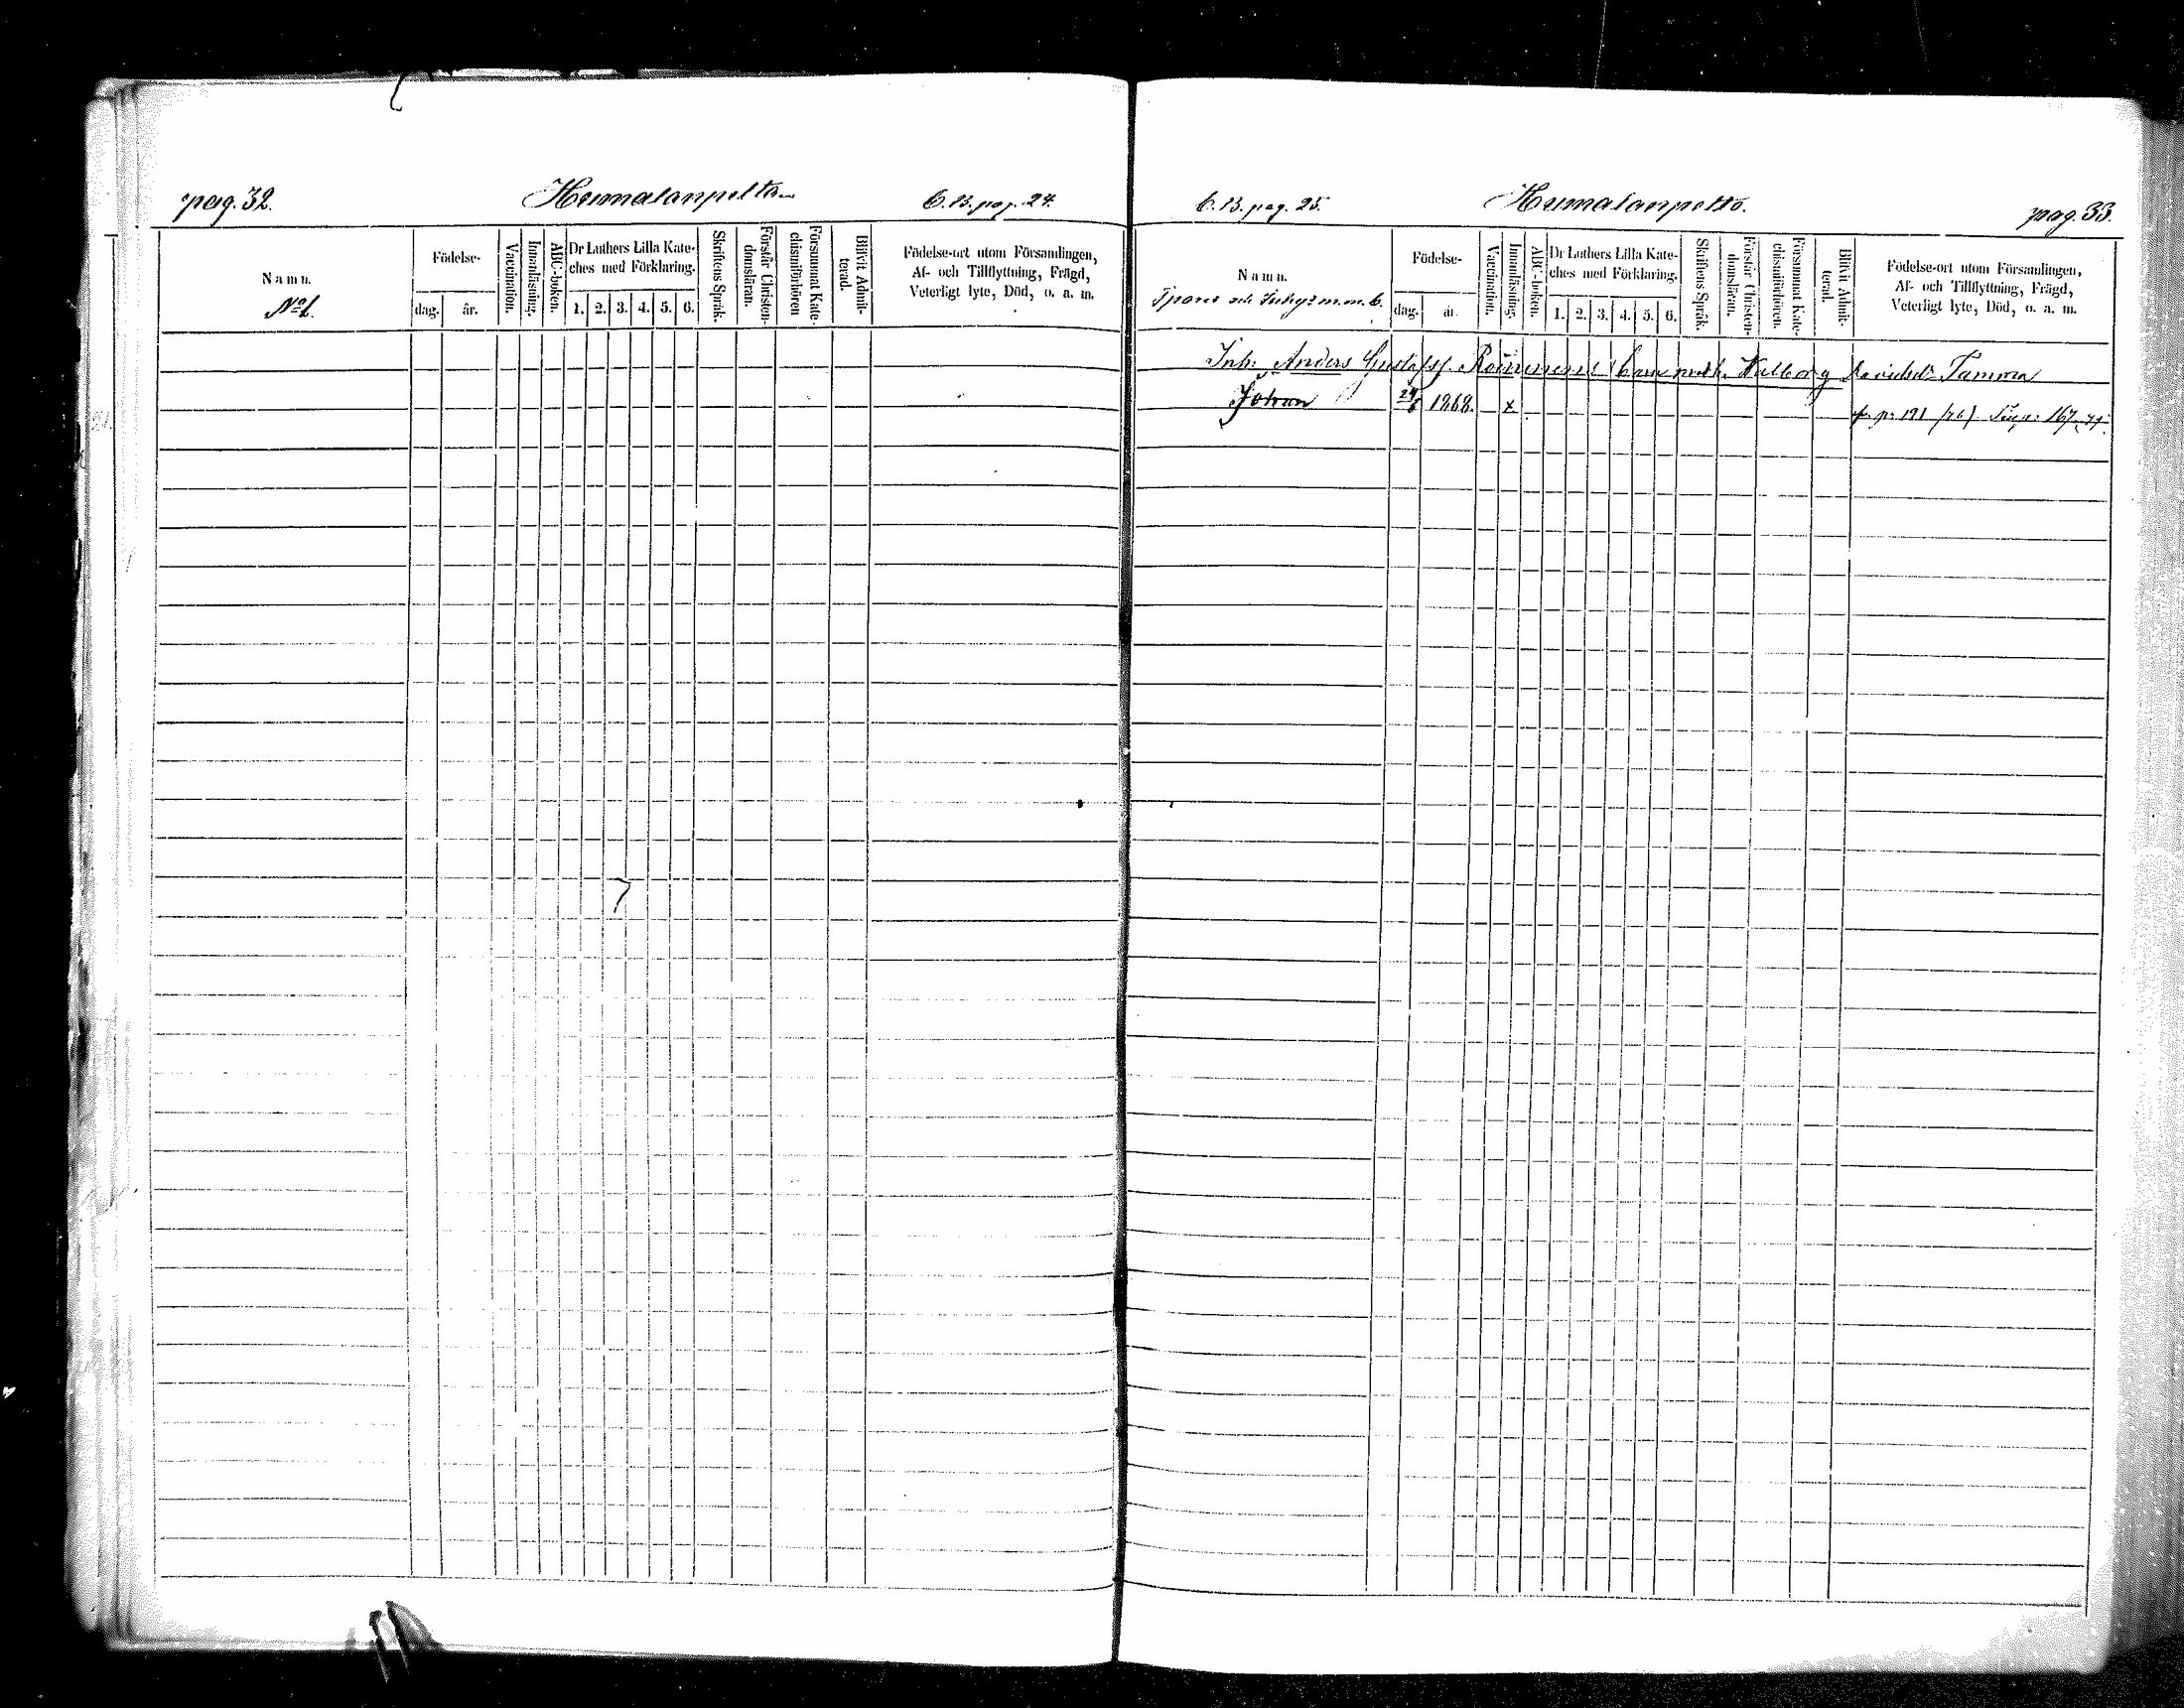 pag. 32. Humalanpelto C. B. pag. 24.
Namn.
No 1.
Födelse-
dag. år.
Vaccination.
Innanläsning.
ABC-boken.
Dr Luthers Lilla Kate-
ches med Förklaring.
1. 2. 3. 4. 5. 6.
Skriftens Språk.
Förstår Christen-
domsläran.
Försummat Kate-
chismiförhören
Blifvit Admit-
terad.
Födelse-ort utom Församlingen,
Af- och Tillflyttning, Frägd,
Veterligt lyte, Död, o. a. m.
C. B. pag. 25. Humalanpelto. pag. 33.
Namn.
Spane och Inhyz m.m. C.
Födelse-
dag. år.
Vaccination.
Innanläsning.
ABC-boken.
Dr Luthers Lilla Kate-
ches med Förklaring.
1. 2. 3. 4. 5. 6.
Skriftens Språk.
Förstår Christen-
domsläran.
Försummat Kate-
chismiförhören.
Blifvit Admit-
terad.
Födelse-ort utom Församlingen,
Af- och Tillflyttning, Frägd,
Veterligt lyte, Död, o. a. m.
Inh. Anders Gustafss. Barn med h. Walborg Davidsdr Tamma
Johan 1868. x fr. p: 191 /76/ 167